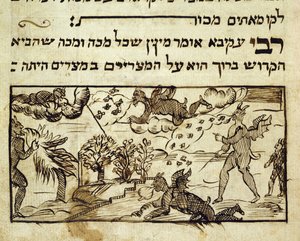 לקו מאתים מכות
רבי עקיבא אומר מנין שכל מכה ומכה שהביא
הקדוש ברוך הוא על המצריים במצרים היתה